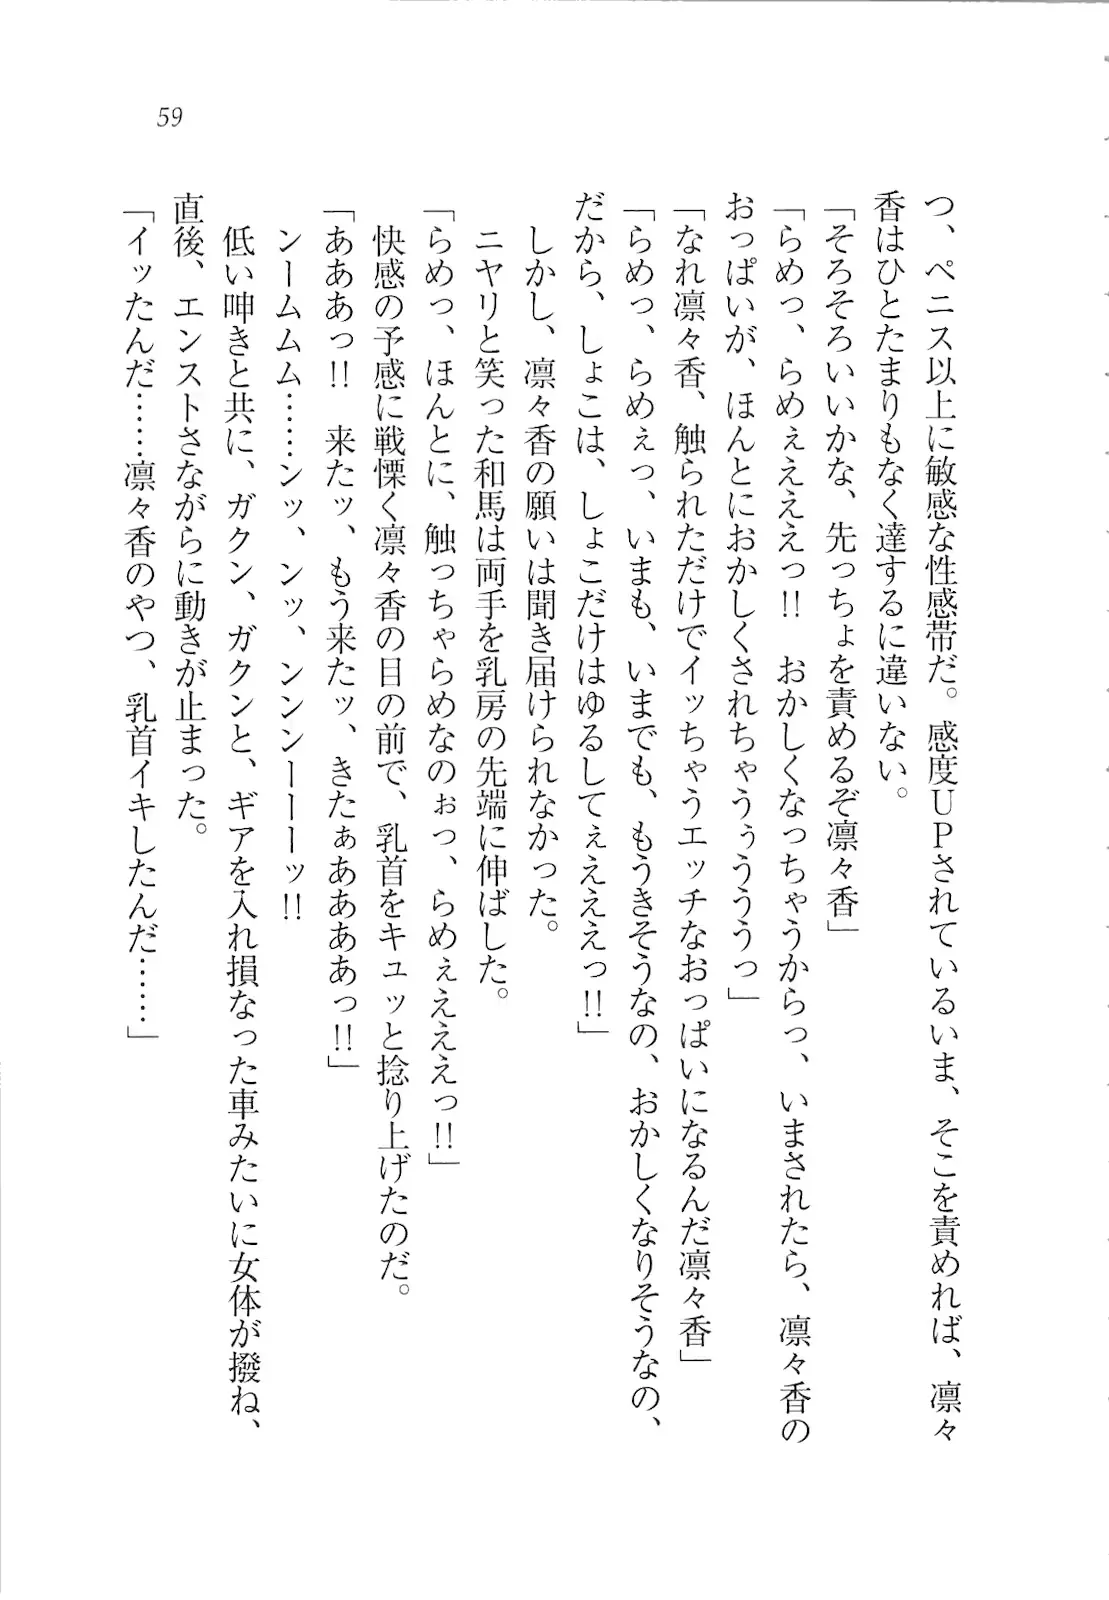 つ、ペニス以上に敏感な性感帯だ。感度UPされているいま、そこを責めれば、凛々
香はひとたまりもなく達するに違いない。
「そろそろいいかな、先っちょを責めるぞ凛々香」
「らめっ、らめぇえええっ!!　おかしくなっちゃうからっ、いまされたら、凛々香の
おっぱいが、ほんとにおかしくされちゃうぅうううっ」
「なれ凛々香、触られただけでイッちゃうエッチなおっぱいになるんだ凛々香」
「らめっ、らめぇっ、いまも、いまでも、もうきそうなの、おかしくなりそうなの、
だから、しょこは、しょこだけはゆるしてぇえええっ!!」
しかし、凛々香の願いは聞き届けられなかった。
ニヤリと笑った和馬は両手を乳房の先端に伸ばした。
「らめっ、ほんとに、触っちゃらめなのぉっ、らめぇえええっ!!」
快感の予感に戦慄く凛々香の目の前で、乳首をキュッと捻り上げたのだ。
「あああっ!!　来たッ、もう来たッ、きたぁああああっ!!」
ンームムム……ンッ、ンッ、ンンンーーーッ!!
低い呻きと共に、ガクン、ガクンと、ギアを入れ損なった車みたいに女体が撥ね、
直後、エンストさながらに動きが止まった。
「イッたんだ……凛々香のやつ、乳首イキしたんだ……」
59